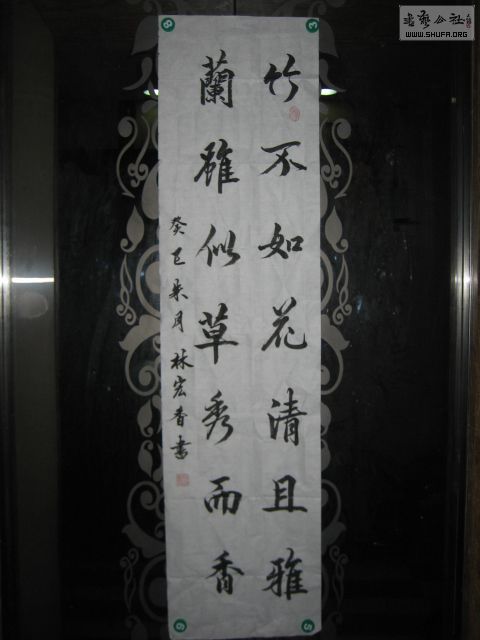 竹不如花清且雅
蘭雖似草秀而香
癸巳
月林宏香書
書藝公社
WWW.SHUFA.ORG